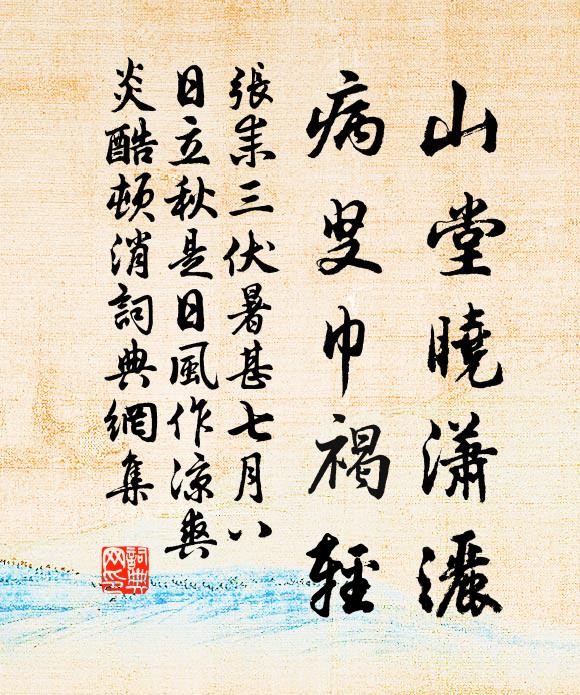 山堂曉瀟灑
病叟巾褐輕
張耒三伏暑甚七月八
日立秋是日風作凉爽
炎酷頓消詞典網集
詞典
网印